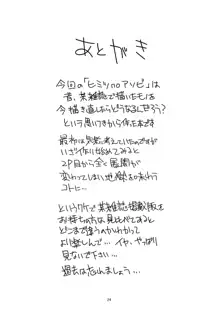 あとがき
今回の「ヒミツnoアソビ」は
昔、某雑誌で描いたモノを
今描き直したらどうなるんだろう?
という思いつきから作った本です
最初は気楽に考えていたのですが
いざ作り始めてみると
2P目から全く展開が
変わってしまい地獄を味わう
コトに…
というワケで某雑誌掲載版を
お持ちの方は見比べてみると
どこまで違うのかわかって
より楽しんで…イヤ、やっぱり
見ないで下さい…
過去は忘れましょう…